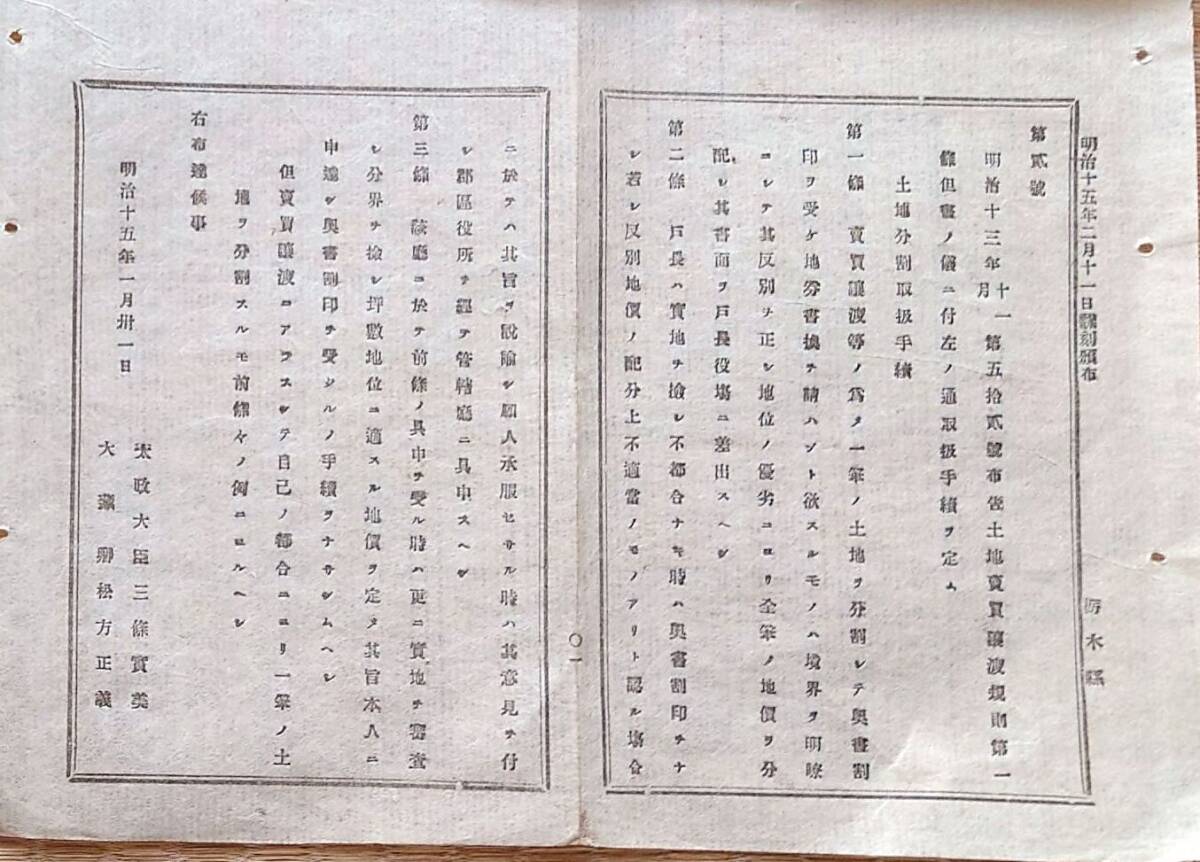 明治十五年二月十一日飜刻頒布
栃木縣
第貳號
明治十三年十一月第五拾貳號布告土地賣買讓渡規則第一
條但書ノ儀ニ付左ノ通取扱手續ヲ定ム
土地分割取扱手續
第一條 賣買讓渡等ノ爲メ一筆ノ土地ヲ分割シテ奥書割
印ヲ受ケ地劵書換ヲ請ハント欲スルモノハ境界ヲ明瞭
ニシテ其反別ヲ正シ地位ノ優劣ニヨリ全筆ノ地價ヲ分
配シ其書面ヲ戸長役塲ニ差出スヘシ
第二條 戸長ハ實地ヲ檢シ不都合ナキ時ハ奥書割印ヲナ
シ若シ反別地價ノ配分上不適當ノモノアリト認ル塲合
〇一
ニ於テハ其旨ヲ説諭シ願人承服セサル時ハ其意見ヲ付
シ郡區役所ヲ經テ管轄廳ニ具申スヘシ
第三條 該廳ニ於テ前條ノ具申ヲ受ル時ハ更ニ實地ヲ審査
シ分界ヲ檢シ坪數地位ニ適スル地價ヲ定メ其旨本人ニ
申達シ奥書割印ヲ受シルノ手續ヲナサシムヘシ
但賣買讓渡ニアラスシテ自己ノ都合ニヨリ一筆ノ土
地ヲ分割スルモ前條々ノ例ニヨルヘシ
右布達候事
明治十五年一月卅一日
太政大臣三條實美
大藏卿松方正義